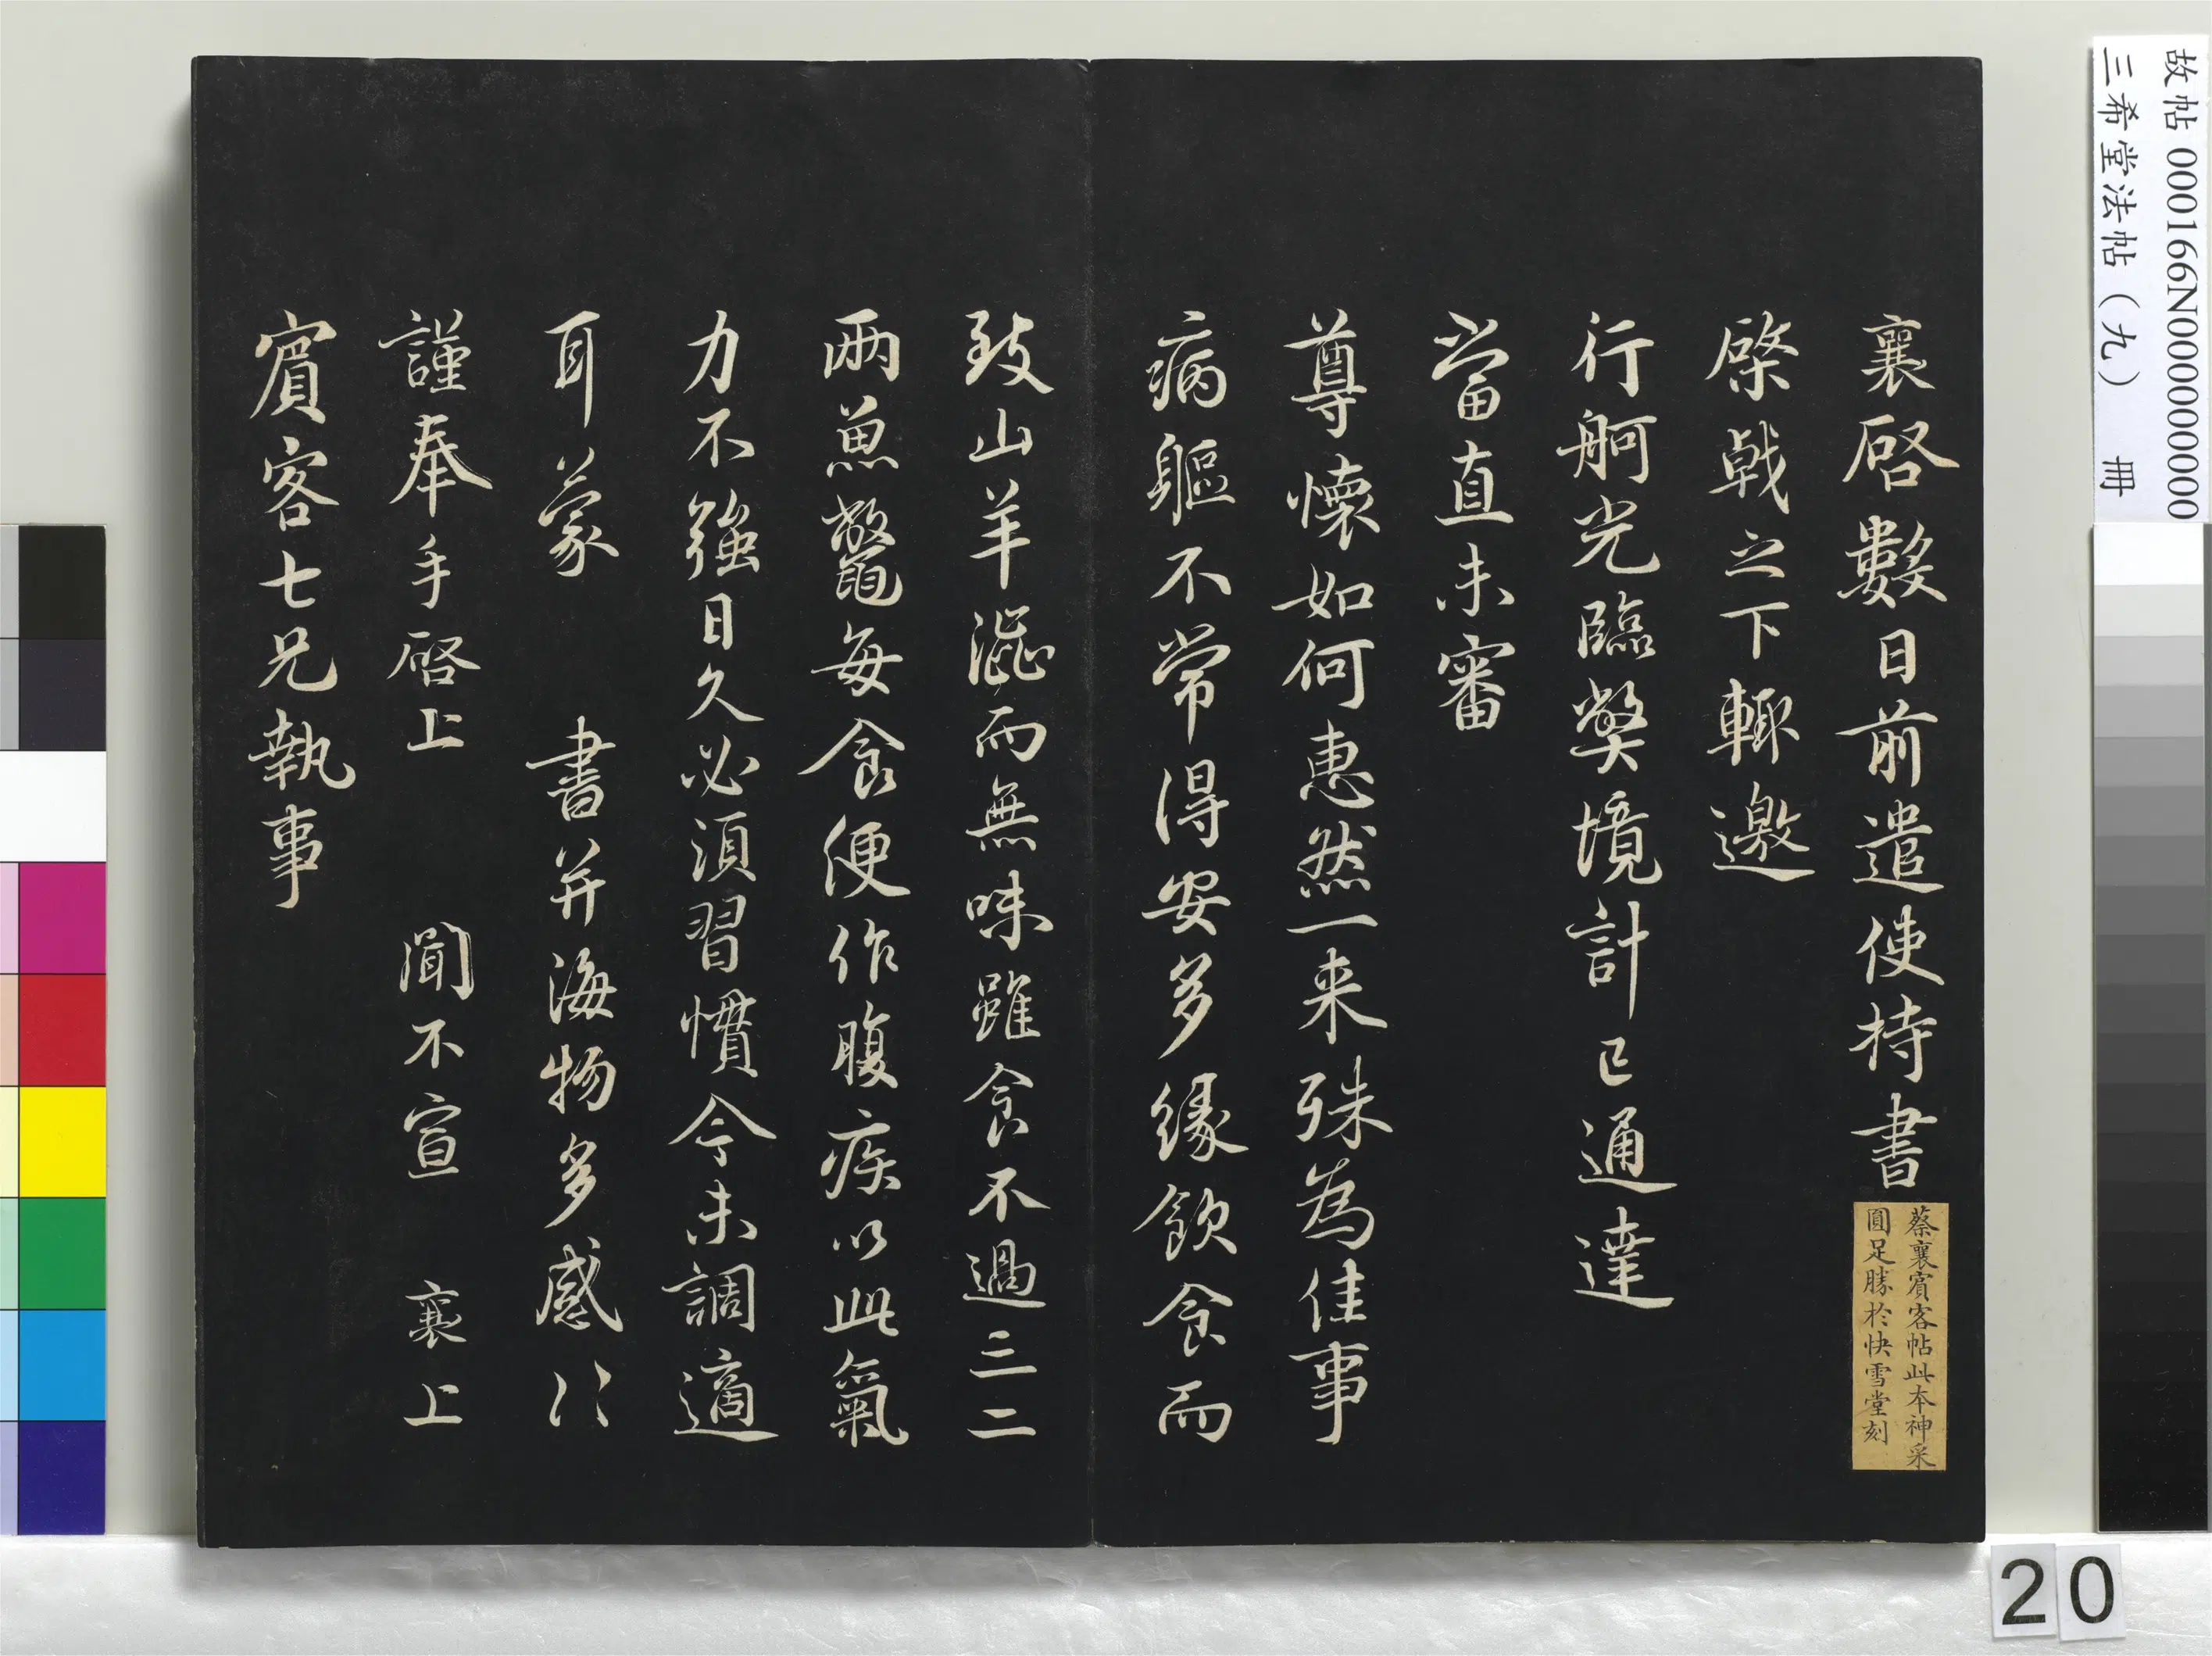 襄啓數日前遣使持書
棨戟之下輙邀
行舸光臨獘境計已通達
當直未審
尊懷如何惠然一来殊為佳事
病軀不常得安多緣飲食而
致山羊澁而無味雖食不過三二
兩魚鼈每食便作腹疾以此氣
力不強日久必須習慣今未調適
耳蒙 書并海物多感〻
謹奉手啓上 聞不宣 襄上
賔客七兄執事
蔡襄賔客帖此本神采
圓足勝於快雪堂刻
故帖 000166N000000000
三希堂法帖（九） 冊
20